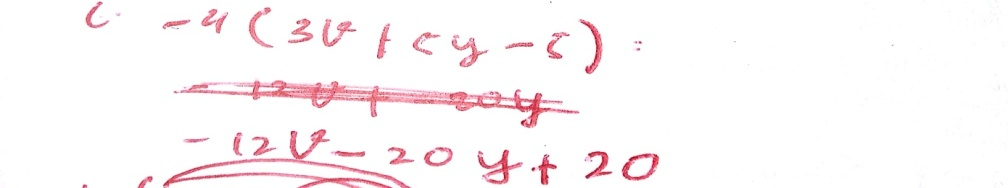 c. -4(3v+5y-5):
-12v+-20y
-12v-20y+20